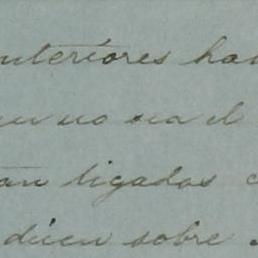 anteriores ha
no sea el
an ligados c
dicen sobre